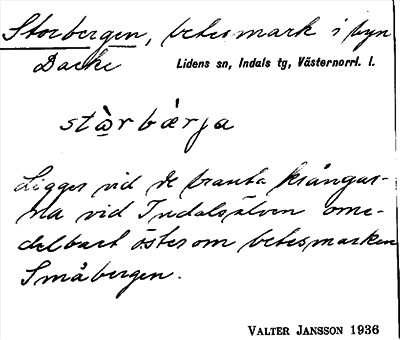 Storbergen, betesmark i byn
Backe Lidens sn, Indals tg, Västernorrl. l.
stɷ̀rbæ̀rja
Ligger vid de branta krångar-
na vid Indalsälven ome-
delbart öster om betesmarken
Småbergen.
VALTER JANSSON 1936